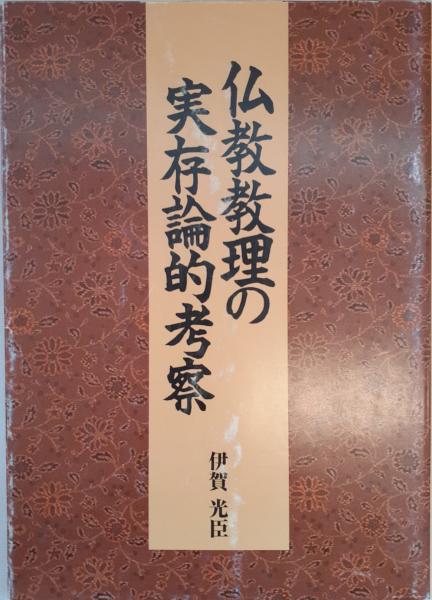 仏教教理の
実存論的考察
伊賀 光臣